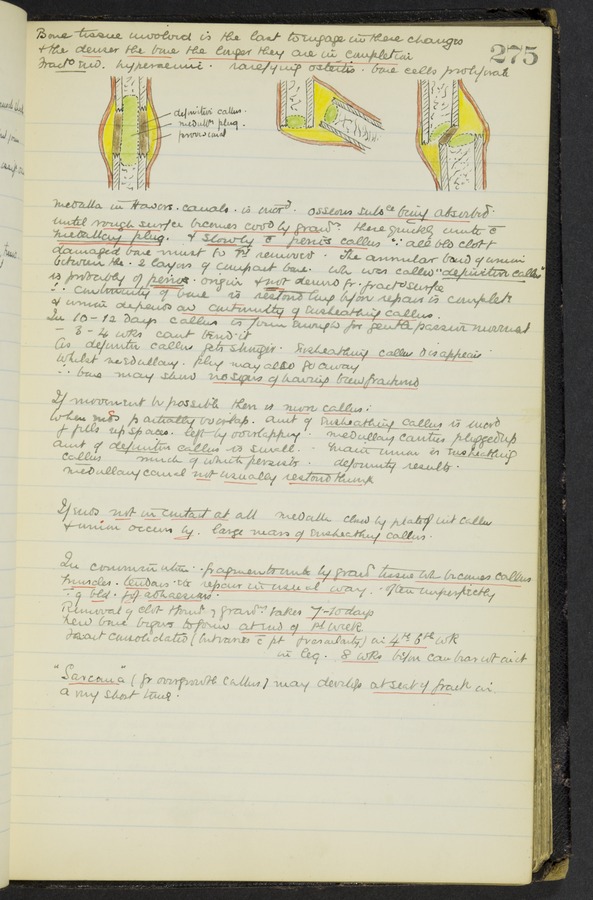 275
Bone tissue involved is the last to engage in these changes
& the denser the bone the longer they are in completion
Fract. ends. hyperaemic. rarefying osteitis. bone cells proliferate
definitive callus.
medully plug.
provisional
medulla in Havers. canals. is incd. osseous subsce being absorbd.
until rough surface becomes covd by grann. these quickly unite c̄
medullary plug. & slowly c̄ perios callus ∵ all bld clot &
damaged bone must be 1st removed. The annular band of union
between the 2 layers of compact bone. wh was called "definitive callus"
is probably of perios. origin & not derived fr. fract surface
∴ continuity of bone is restored long before repair is complete
& union depends on continuity of ensheathing callus.
In 10-12 days callus is firm enough for gentle passive movement
- 3-4 wks cant bend it
As definitive callus gets stronger. Ensheathing callus disappears
whilst medullary. plug may also go away
∴ bone may show no signs of having been fractured
If movement be possible there is more callus.
When ends partially overlap. amt of Ensheathing callus is incd
& fills up spaces. left by overlapping. medullary cavities plugged up
amt of definitive callus is small. main union is Ensheathing
callus much of which persists. deformity results.
medullary canal not usually restored
If ends not in contact at all medulla closed by plate of int callus
& union occurs by. large mass of Ensheathing callus.
In comminution. fragments unite by grand tissue wh becomes callus
muscles. tendons. etc repair in usual way. often imperfectly
Removal of clot & grann takes 7-10 days
New bone begins to form at end of 1st week
Fract consolidated (but varies c̄ pt & vascularity) in 4th 6th wk
in leg. 8 wks before can bear wt on it
"Sarcoma" (fr overgrowth callus) may develop at seat of fract in
a very short time.